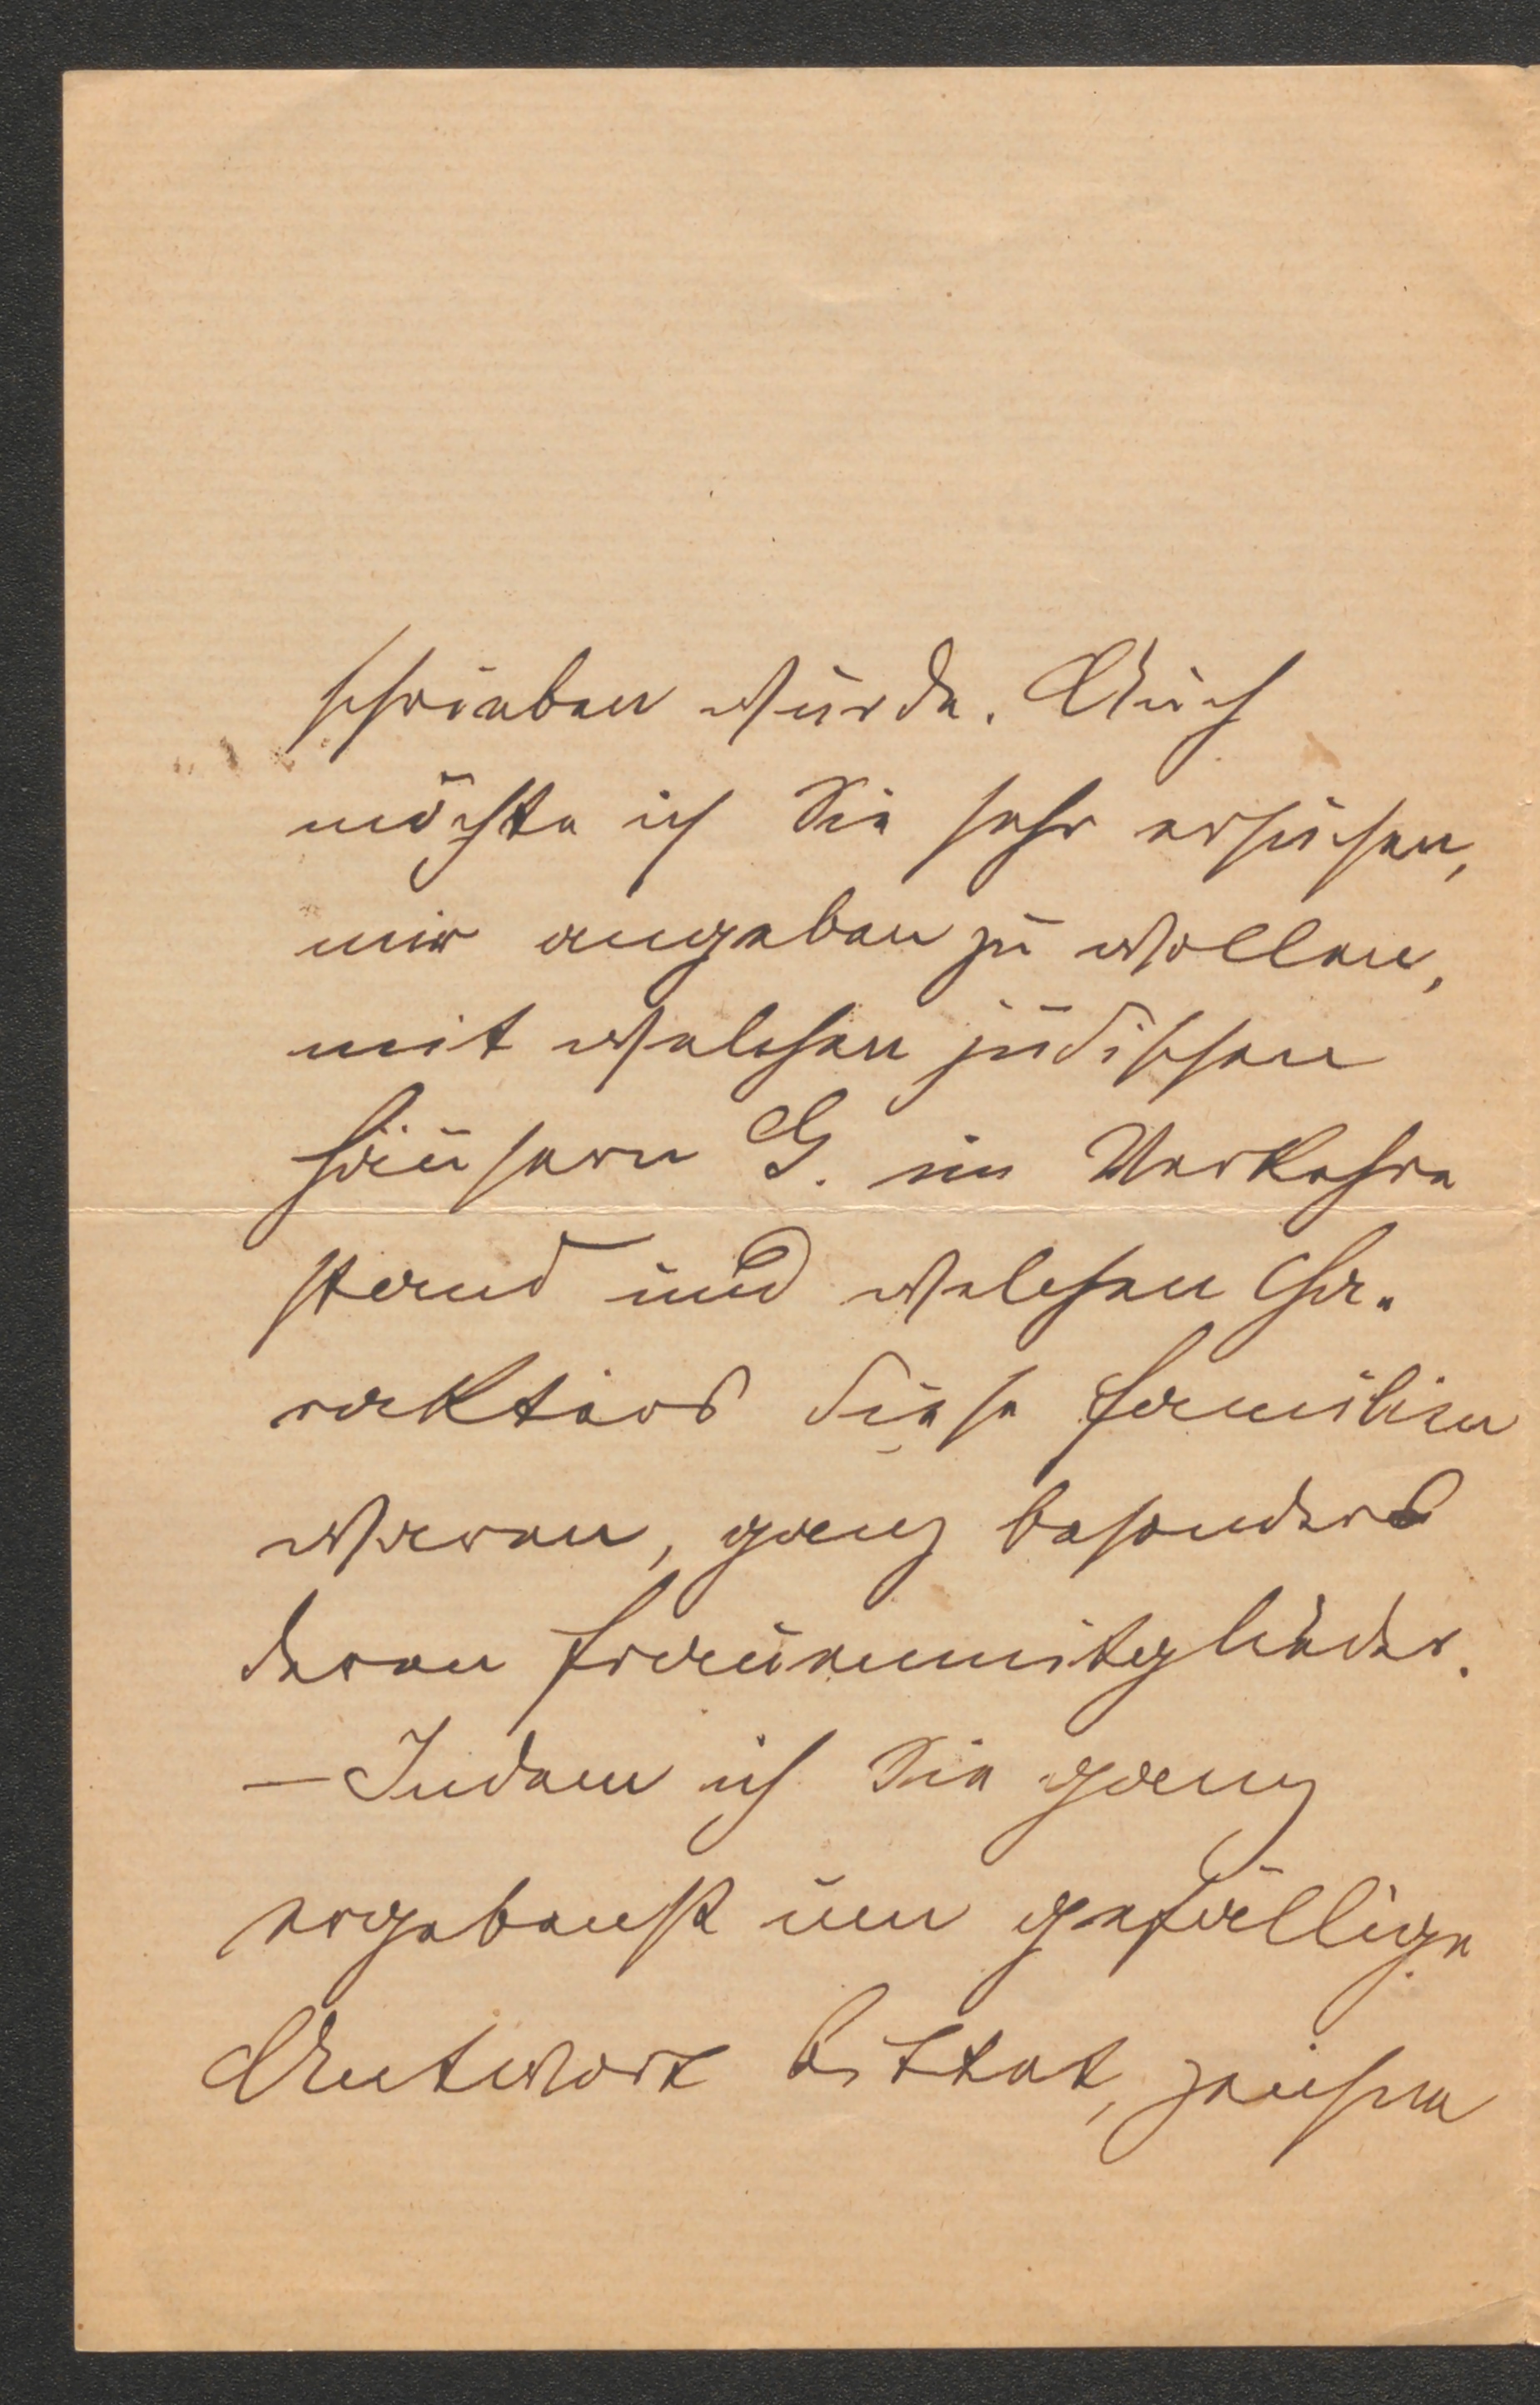 schrieben wurde. Auch
möchte ich Sie sehr ersuchen,
mir angeben zu wollen,
mit welchen jüdischen
Häusern G. im Verkehre
stand und welchen Cha-
rakters diese Familien
waren, ganz besonders
deren Frauenmitglieder.
— Indem ich Sie ganz
ergebenst um gefällige
Antwort bittet, zeichne